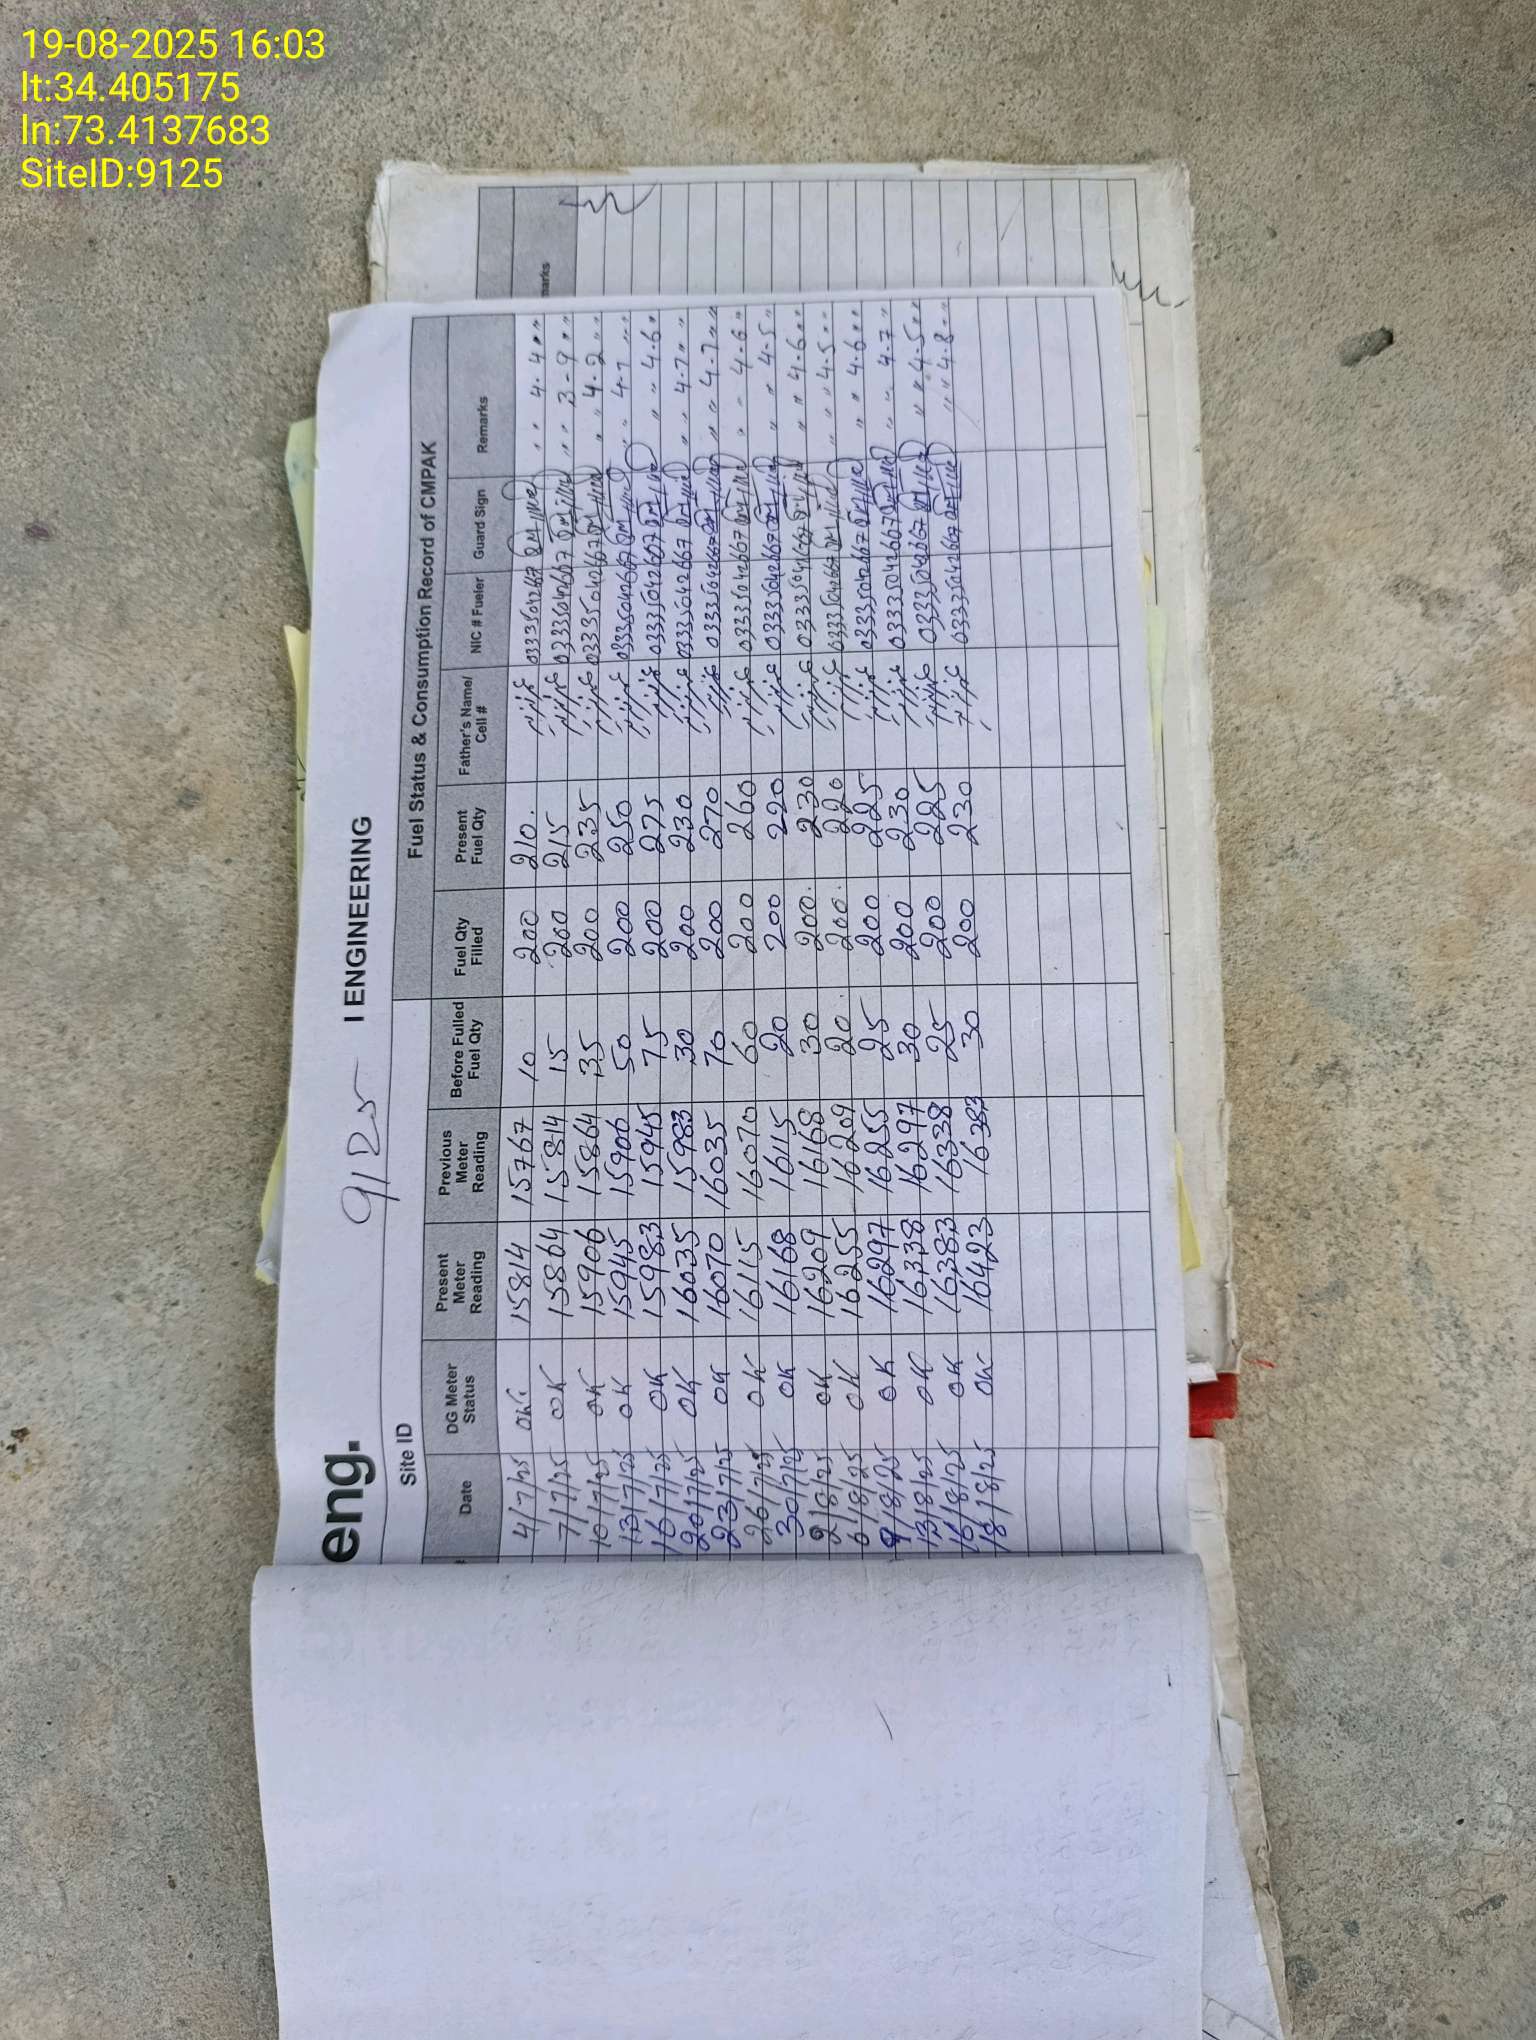 19-08-2025 16:03
lt:34.405175
ln:73.4137683
SiteID:9125
eng.
9125 I ENGINEERING
Site ID
Fuel Status & Consumption Record of CMPAK
Date DG Meter Status Present Meter Reading Previous Meter Reading Before Fulled Fuel Qty Fuel Qty Filled Present Fuel Qty Father's Name/ Cell # NIC # Fueler Guard Sign Remarks
marks
4/7/25 OK 15814 15767 10 200 210. 4.4 ""
7/7/25 OK 15864 15814 15 200 215 03335042667 3-9 ""
10/7/25 OK 15906 15864 35 200 235 03335042667 " 4.2 ""
13/7/25 OK 15945 15906 50 200 250 03335042667 " 4.1 ""
16/7/25 OK 15983 15945 75 200 275 03335042667 " " 4.6 "
20/7/25 OK 16035 15983 30 200 230 03335042667 " " 4.7 ""
23/7/25 OK 16070 16035 70 200 270 03335042667 " " 4.7 ""
26/7/25 OK 16115 16070 60 200 260 03335042667 " " 4.6 "
30/7/25 OK 16168 16115 20 200 220 03335042667 " " 4.5 "
2/8/25 OK 16209 16168 30 200. 230 03335042667 " " 4.6 ""
6/8/25 OK 16255 16209 20. 200. 220 03335042667 " " 4.5 ""
9/8/25 OK 16297 16255 25 200 225 03335042667 " " 4.6 ""
13/8/25 OK 16338 16297 30 200. 230 03335042667 " " 4.7 "
16/8/25 OK 16383 16338 25 200 225 03335042667 " " 4.5 ""
18/8/25 OK 16423 16383 30 200 230 03335042667 " " 4.8 ""